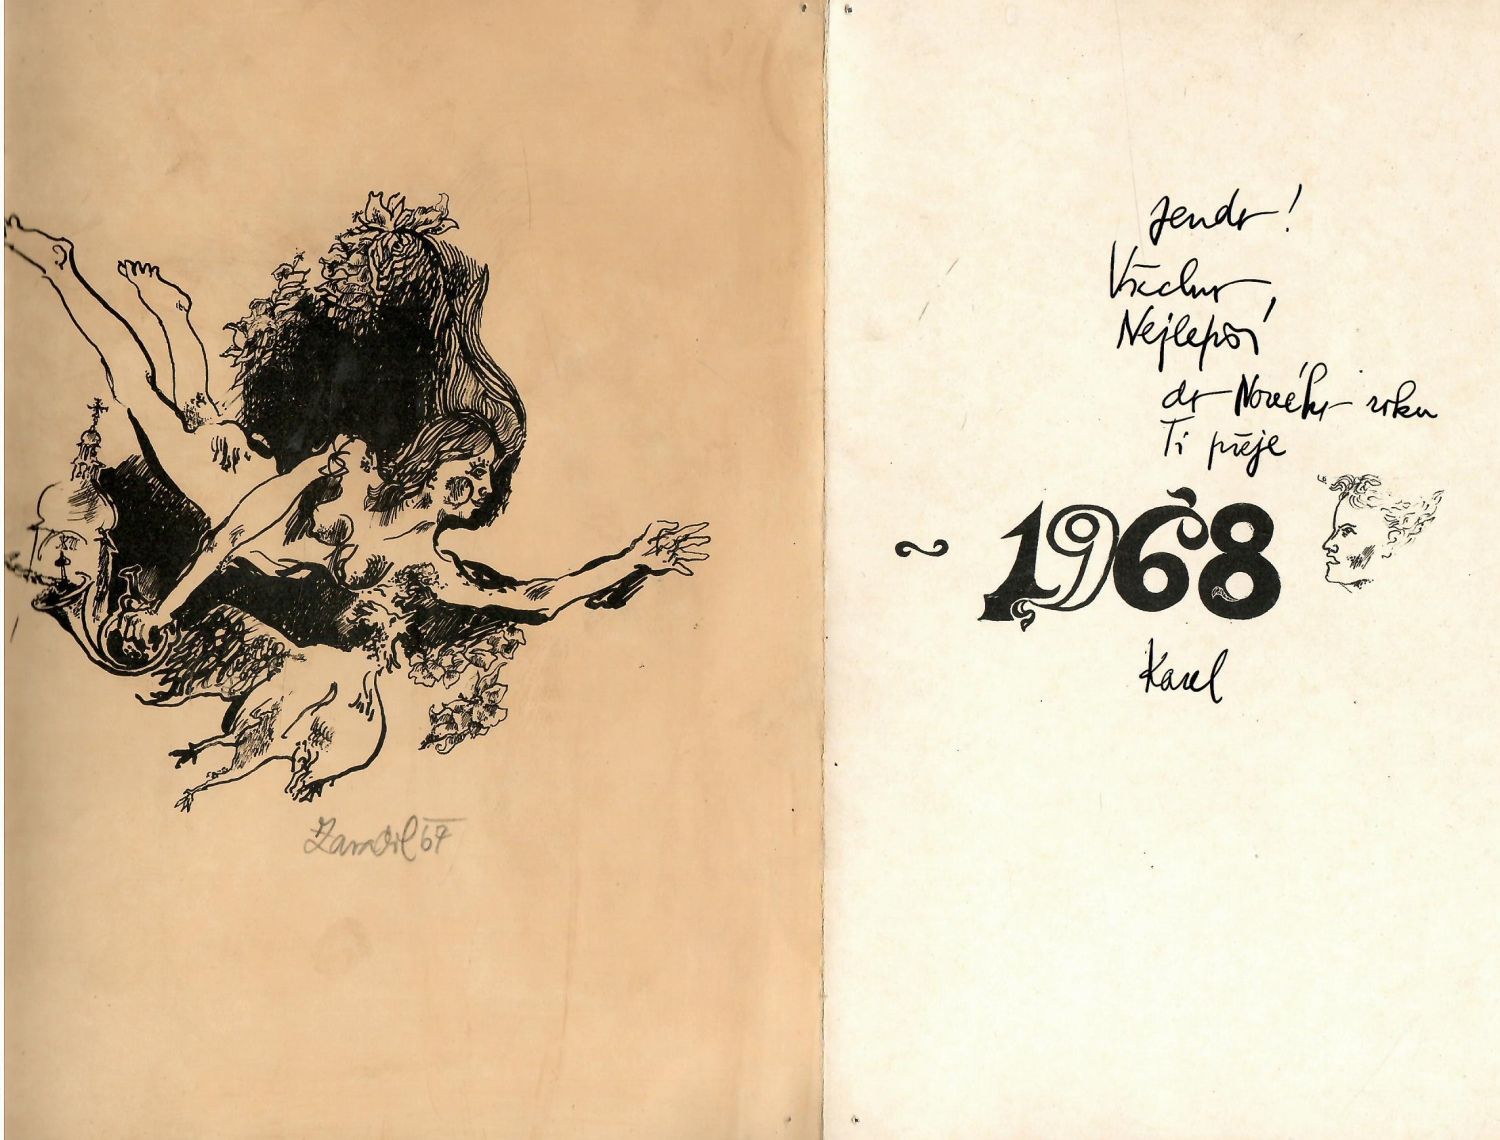 Zavadil 67
Jendo!
Všechno
Nejlepší
do Nového roku
Ti přeje
~ 1968
Karel